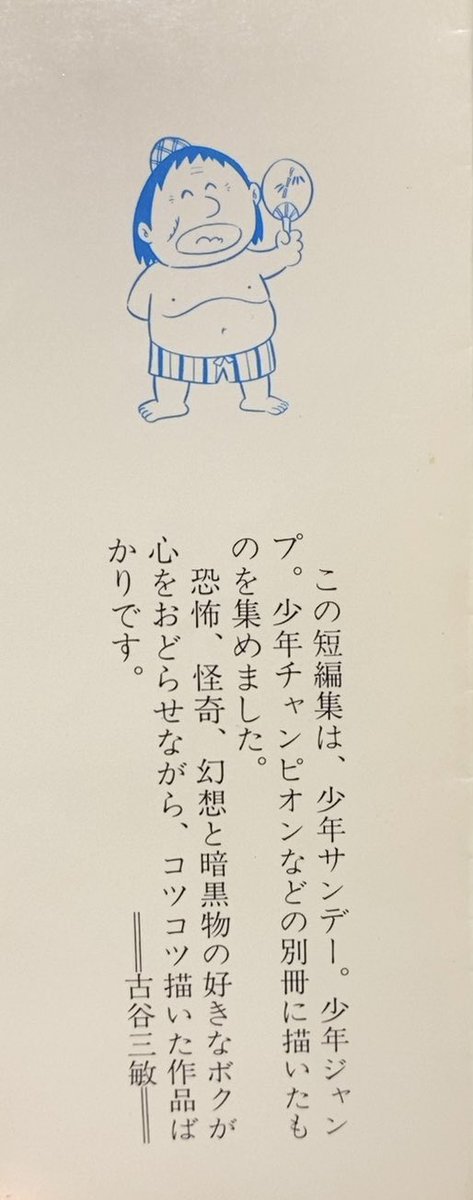 この短編集は、少年サンデー。少年ジャン
プ。少年チャンピオンなどの別冊に描いたも
のを集めました。
恐怖、怪奇、幻想と暗黒物の好きなボクが
心をおどらせながら、コツコツ描いた作品ば
かりです。
══古谷三敏══